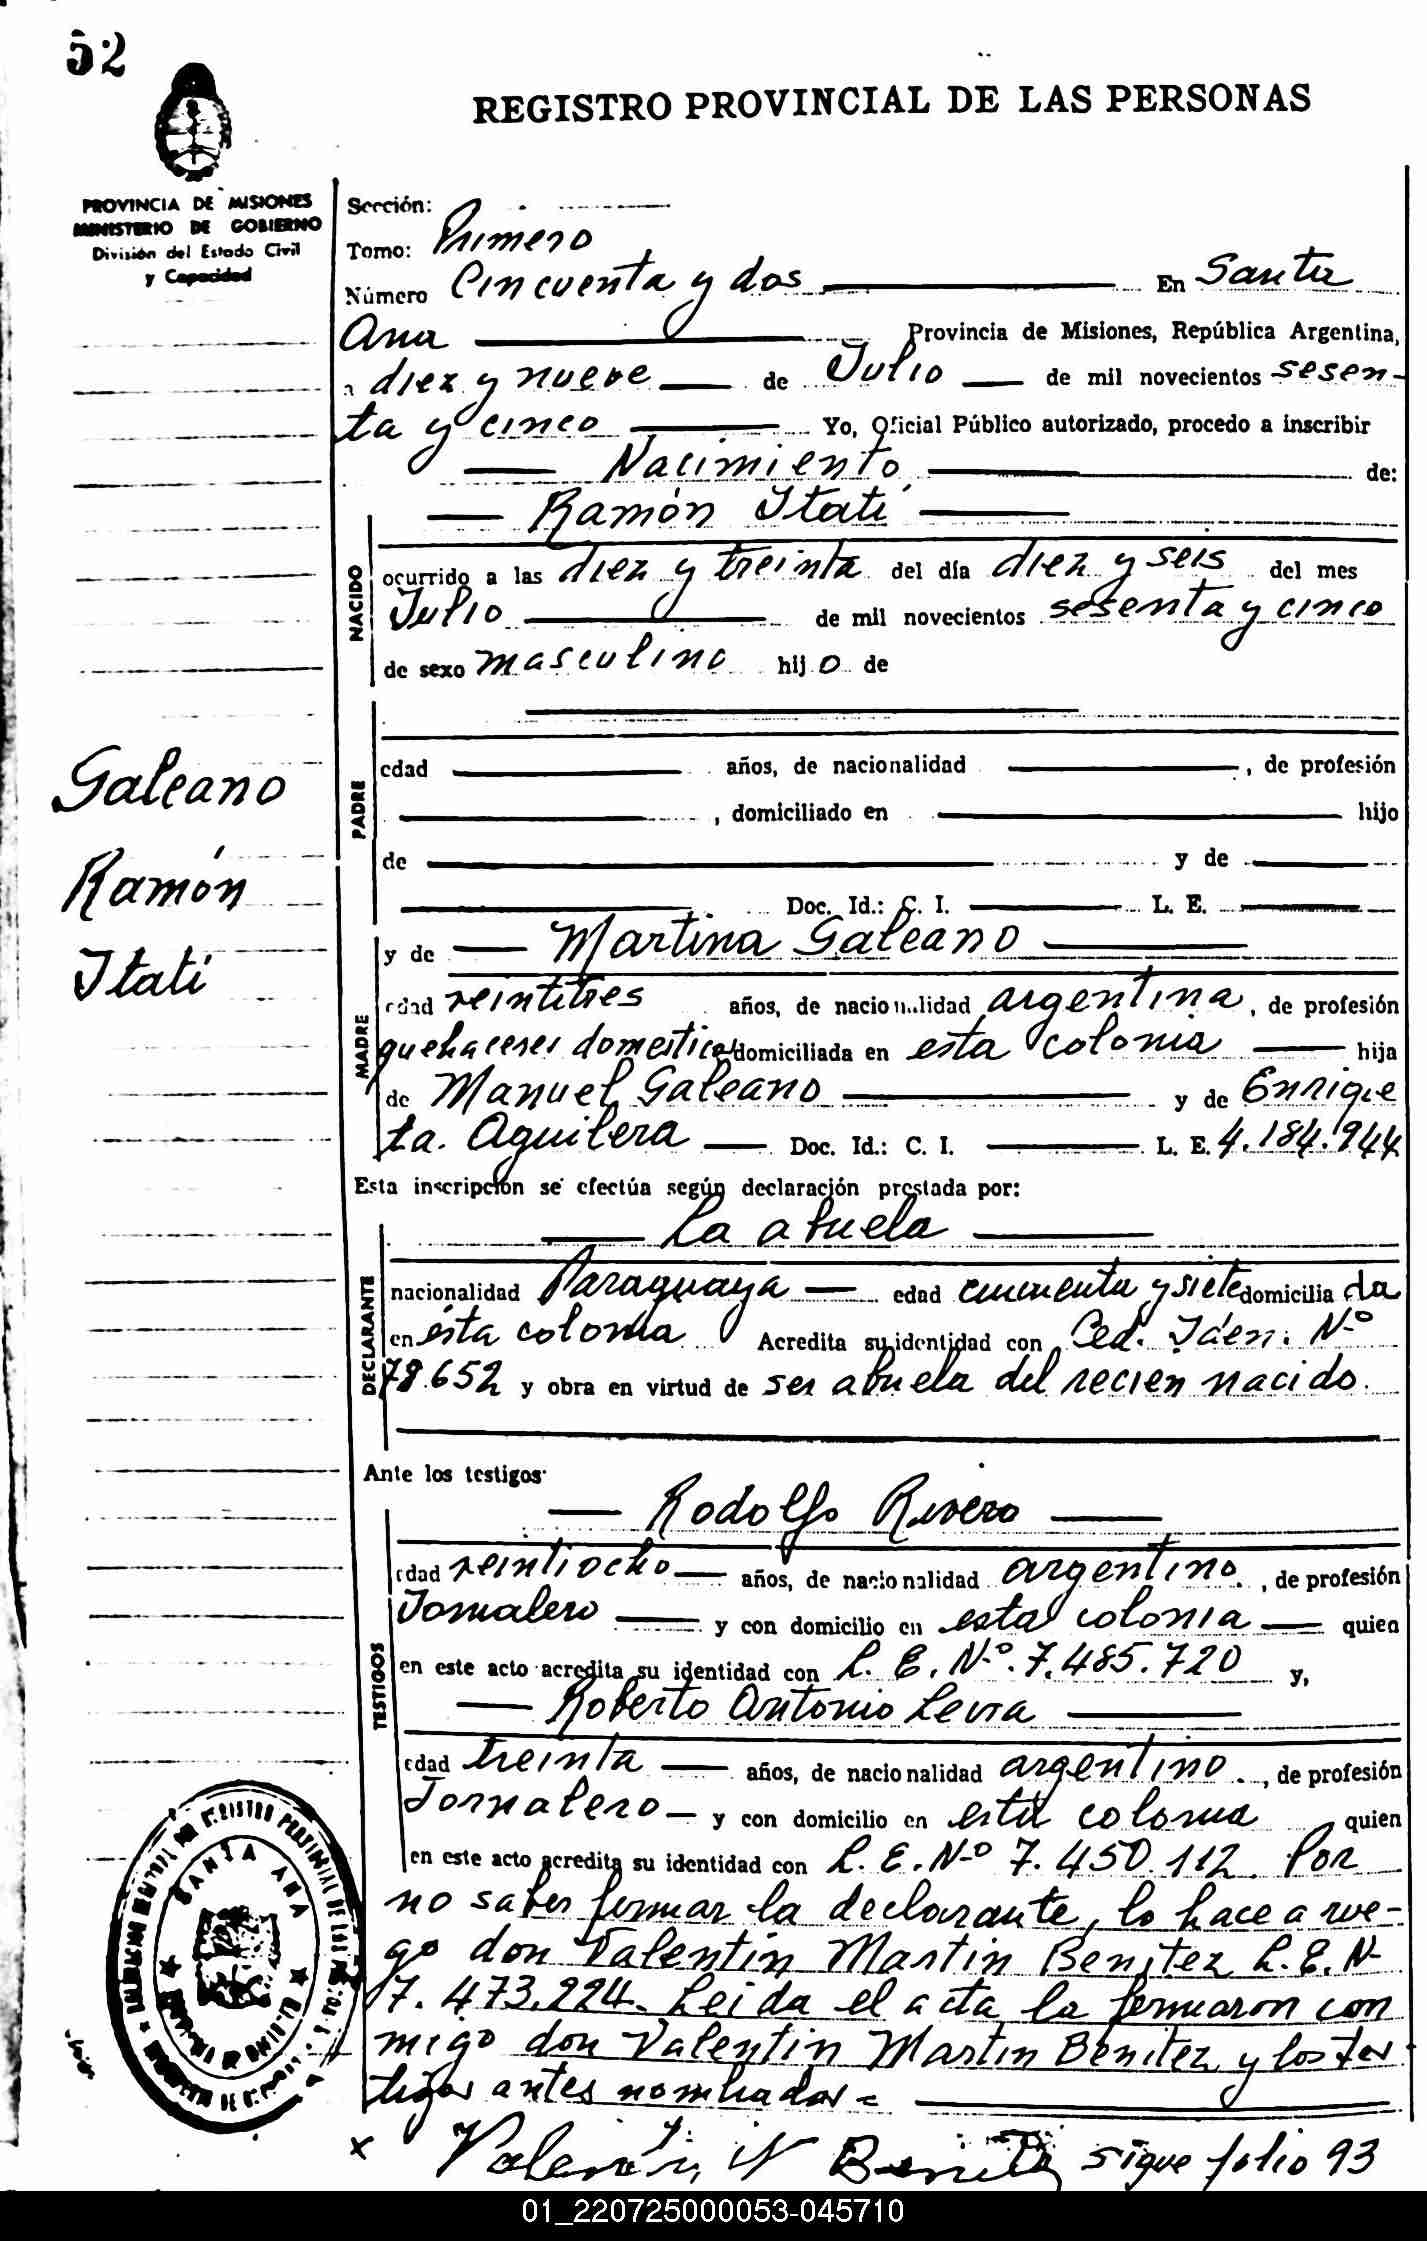 52
REGISTRO PROVINCIAL DE LAS PERSONAS
PROVINCIA DE MISIONES
MINISTERIO DE GOBIERNO
División del Estado Civil
y Capacidad
Sección:
Tomo: Primero
Número Cincuenta y dos En Santa
Ana Provincia de Misiones, República Argentina,
a diez y nueve de Julio de mil novecientos sesen-
ta y cinco Yo, Oficial Público autorizado, procedo a inscribir
Nacimiento de:
Ramón Itatí
NACIDO
ocurrido a las diez y treinta del día diez y seis del mes
Julio de mil novecientos sesenta y cinco
de sexo masculino hijo de
Galeano
Ramón
Itatí
PADRE
edad años, de nacionalidad , de profesión
, domiciliado en hijo
de y de
Doc. Id.: C. I. L. E.
MADRE
y de Martina Galeano
edad veintitres años, de nacionalidad argentina, de profesión
quehaceres domesticos domiciliada en esta colonia hija
de Manuel Galeano y de Enrique
ta. Aguilera Doc. Id.: C. I. L. E. 4.184.944
Esta inscripción se efectúa según declaración prestada por:
La abuela
DECLARANTE
nacionalidad Paraguaya edad cincuenta y siete domicilia da
en esta colonia Acredita su identidad con Ced. Iden. Nº
78.652 y obra en virtud de ser abuela del recien nacido.
Ante los testigos:
Rodolfo Rivero
TESTIGOS
edad veintiocho años, de nacionalidad argentino. , de profesión
Jornalero y con domicilio en esta colonia quien
en este acto acredita su identidad con L. E. Nº. 7.485.720 y,
Roberto Antonio Leiva
edad treinta años, de nacionalidad argentino. , de profesión
Jornalero y con domicilio en esta colonia quien
en este acto acredita su identidad con L. E. Nº 7.450.112 Por
no saber firmar la declarante, lo hace a rue-
go don Valentin Martin Benitez L. E. N-
7.473.224. Leida el acta la firmaron con
migo don Valentin Martin Benitez y los tes-
tigos antes nombrados=
SANTA ANA
x Valentin M Benitez sigue folio 93
01_220725000053-045710